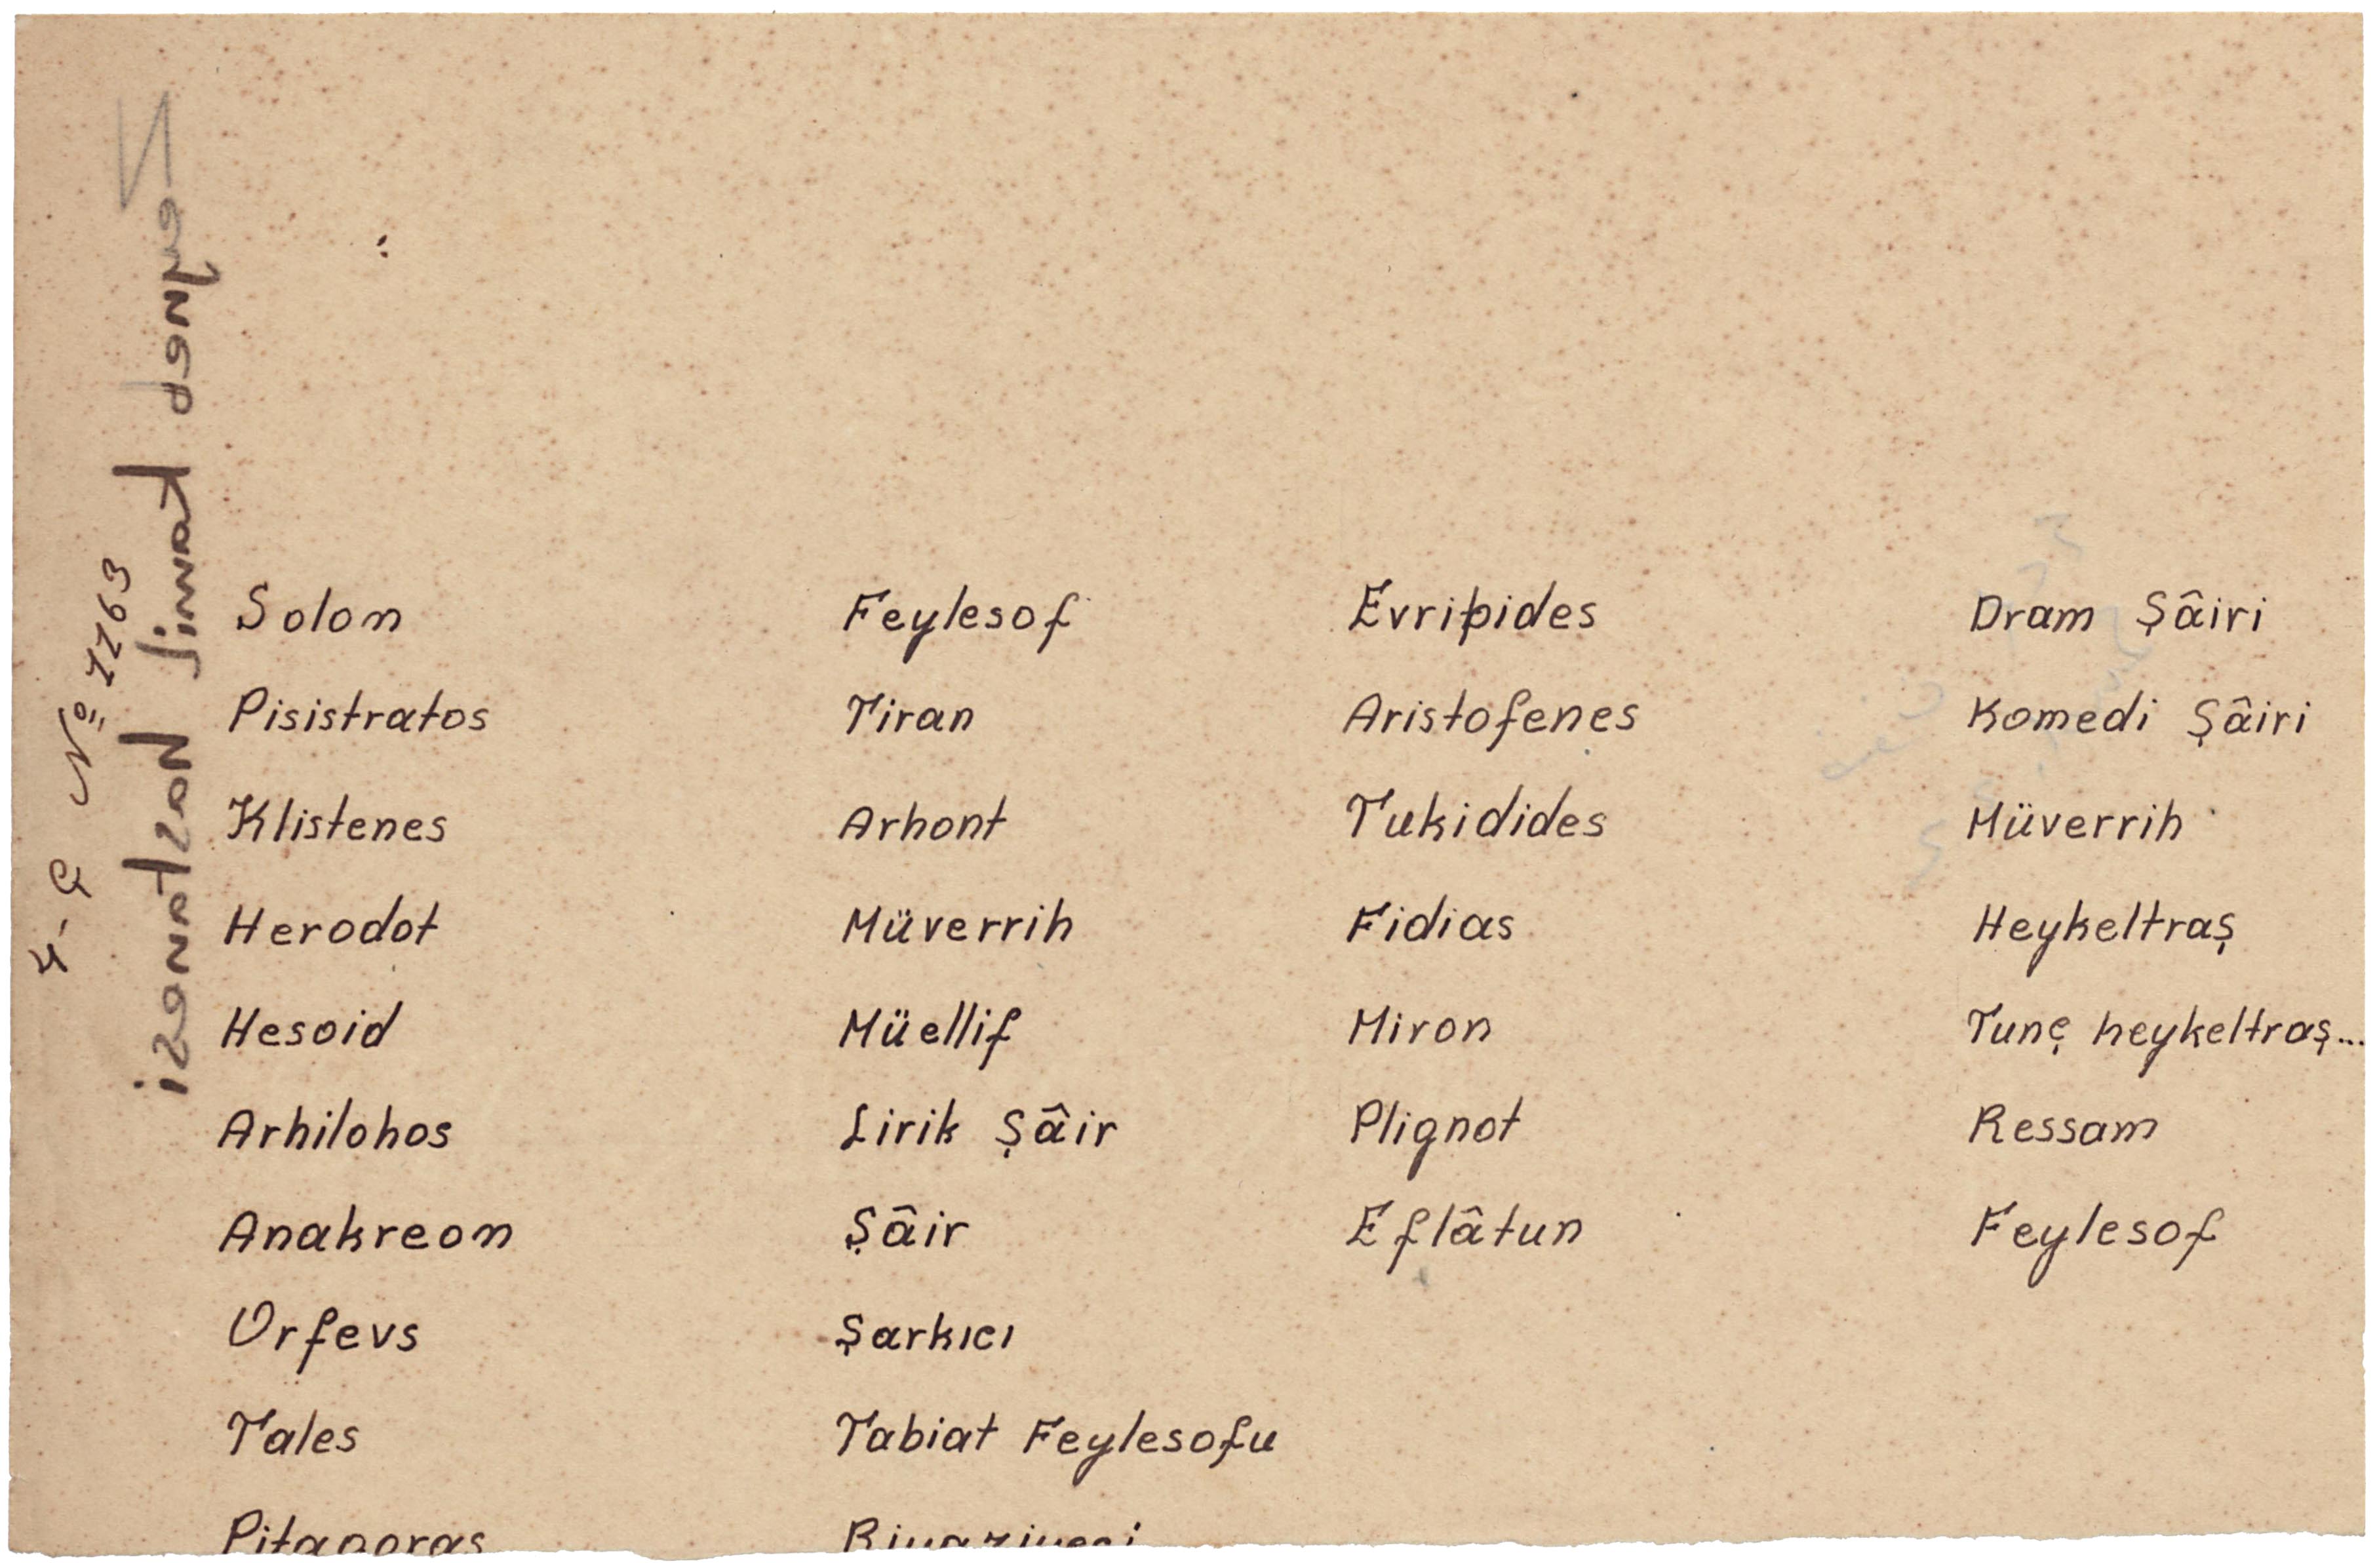 4-G № 1163
Solon Feylesof Evripides Dram Şâiri
Pisistratos Tiran Aristofenes Komedi Şâiri
Klistenes Arhont Tukidides Müverrih
Herodot Müverrih Fidias Heykeltraş
Hesoid Müellif Miron Tunç heykeltraş...
Arhilohos Lirik Şâir Plignot Ressam
Anakreon Şâir Eflâtun Feylesof
Orfevs Şarkıcı
Tales Tabiat Feylesofu
Pitagoras Riyaziyeci